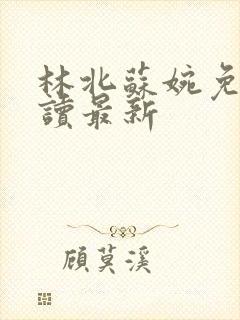 林北蘇婉免
讀最新
顧莫溪